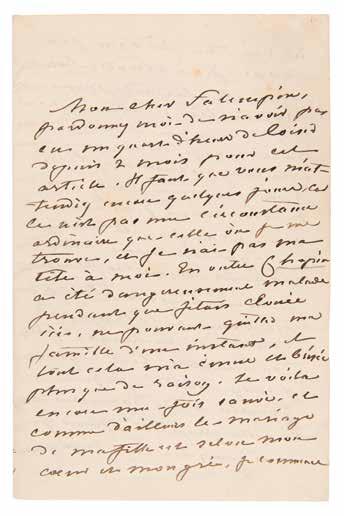 Mon cher Falempin,
pardonnez moi de n'avoir pas
eu un quart d'heure de loisir
depuis 2 mois pour cet
article. Il faut que vous m'at-
tendiez encore quelques jours, car
ce n'est pas une circonstance
ordinaire que celle où je me
trouve, et je n'ai pas ma
tête à moi. En outre Chopin
a été dangereusement malade
pendant que j'étais clouée
ici, ne pouvant quitter ma
famille d'un instant, et
tout cela m'a émue et brisée
plus que de raison. Le voilà
encore une fois sauvé, et
comme d'ailleurs le mariage
de ma fille est selon mon
cœur et mon gré, je commence